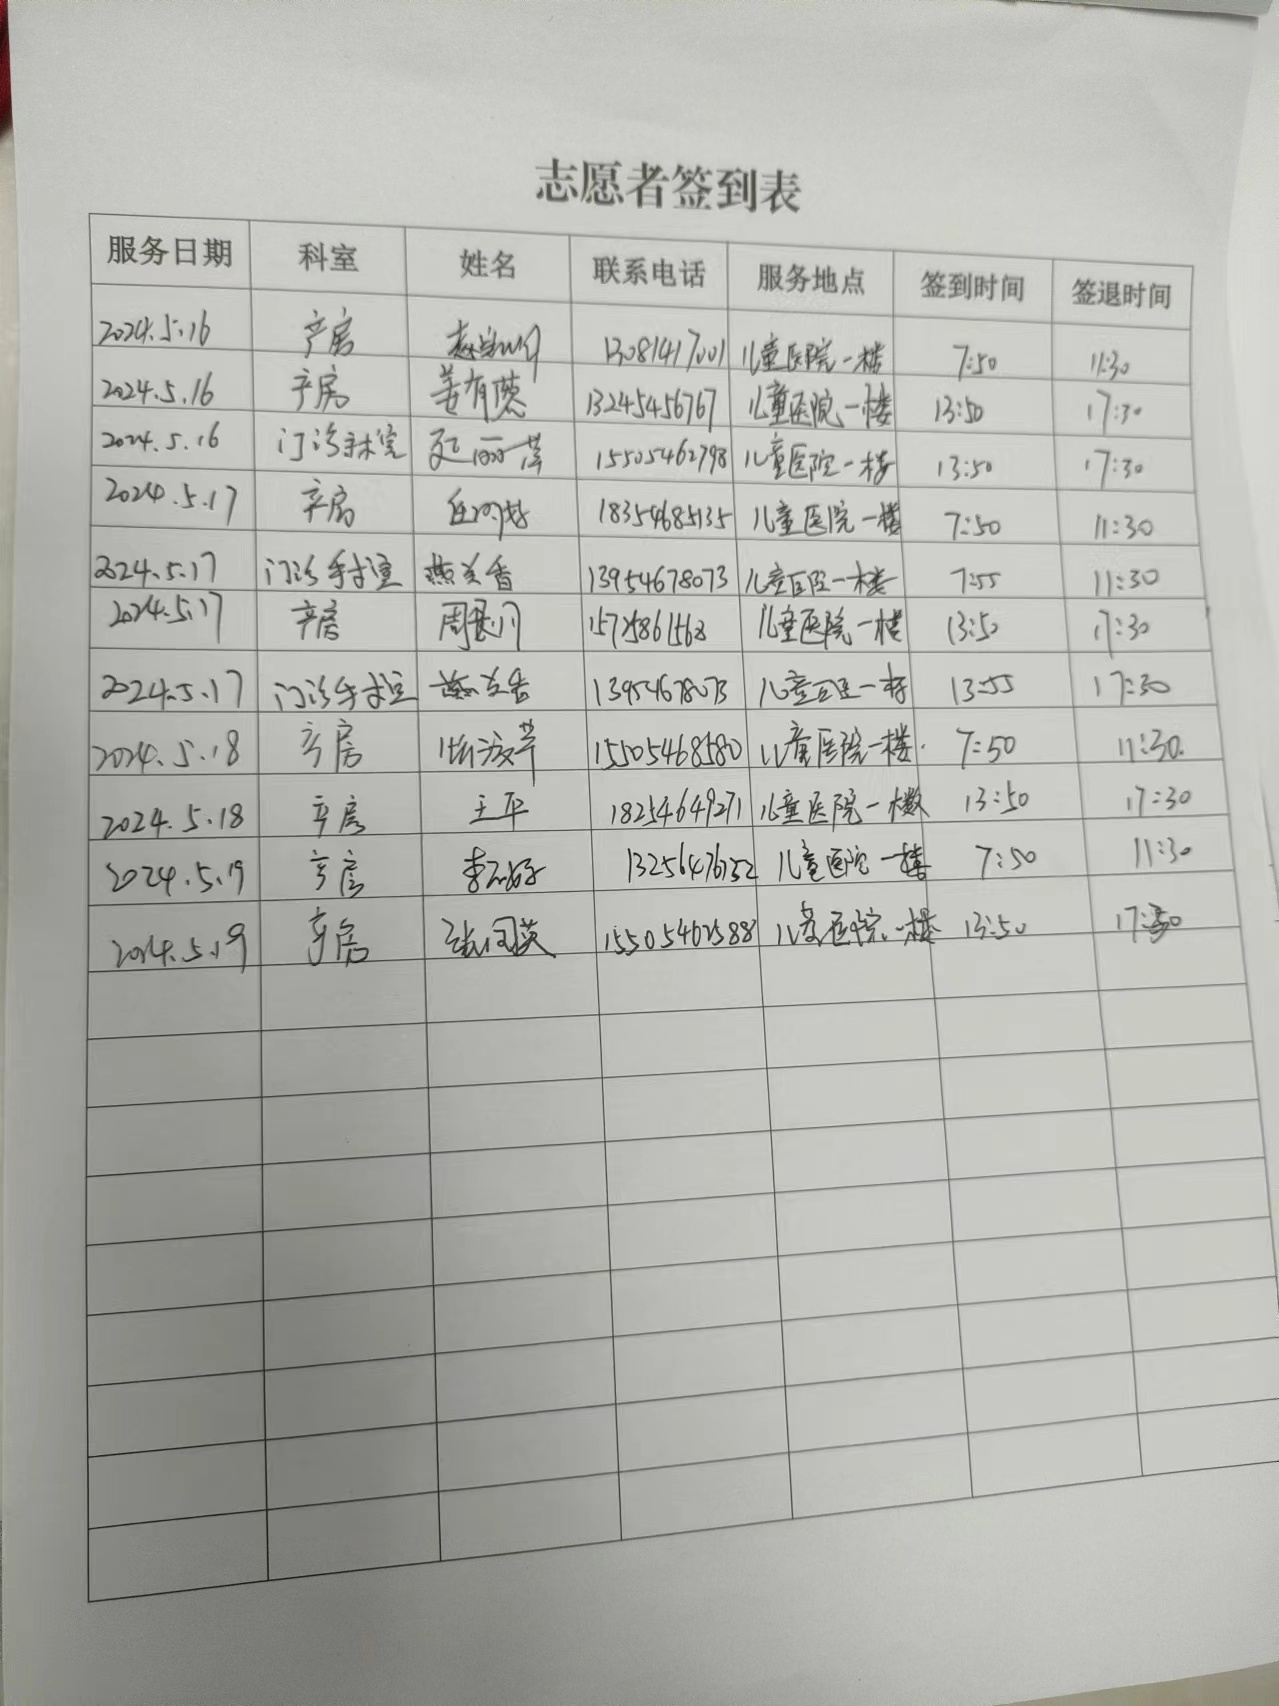 志愿者签到表
服务日期 科室 姓名 联系电话 服务地点 签到时间 签退时间
2024.5.16 产房 13081417001 儿童医院一楼 7:50 11:30
2024.5.16 产房 姜有慈 13245456767 儿童医院一楼 13:50 17:30
2024.5.16 门诊手术室 15505462798 儿童医院一楼 13:50 17:30
2024.5.17 产房 18354685135 儿童医院一楼 7:50 11:30
2024.5.17 门诊手术室 燕兰香 13954678073 儿童医院一楼 7:55 11:30
2024.5.17 产房 儿童医院一楼 13:50 17:30
2024.5.17 门诊手术室 燕兰香 13954678073 儿童医院一楼 13:55 17:30
2024.5.18 产房 15505468580 儿童医院一楼. 7:50 11:30.
2024.5.18 产房 王平 18254649271 儿童医院一楼 13:50 17:30
2024.5.19 产房 儿童医院一楼 7:50 11:30
2024.5.19 产房 张同英 15505462588 儿童医院一楼 13:50 17:30